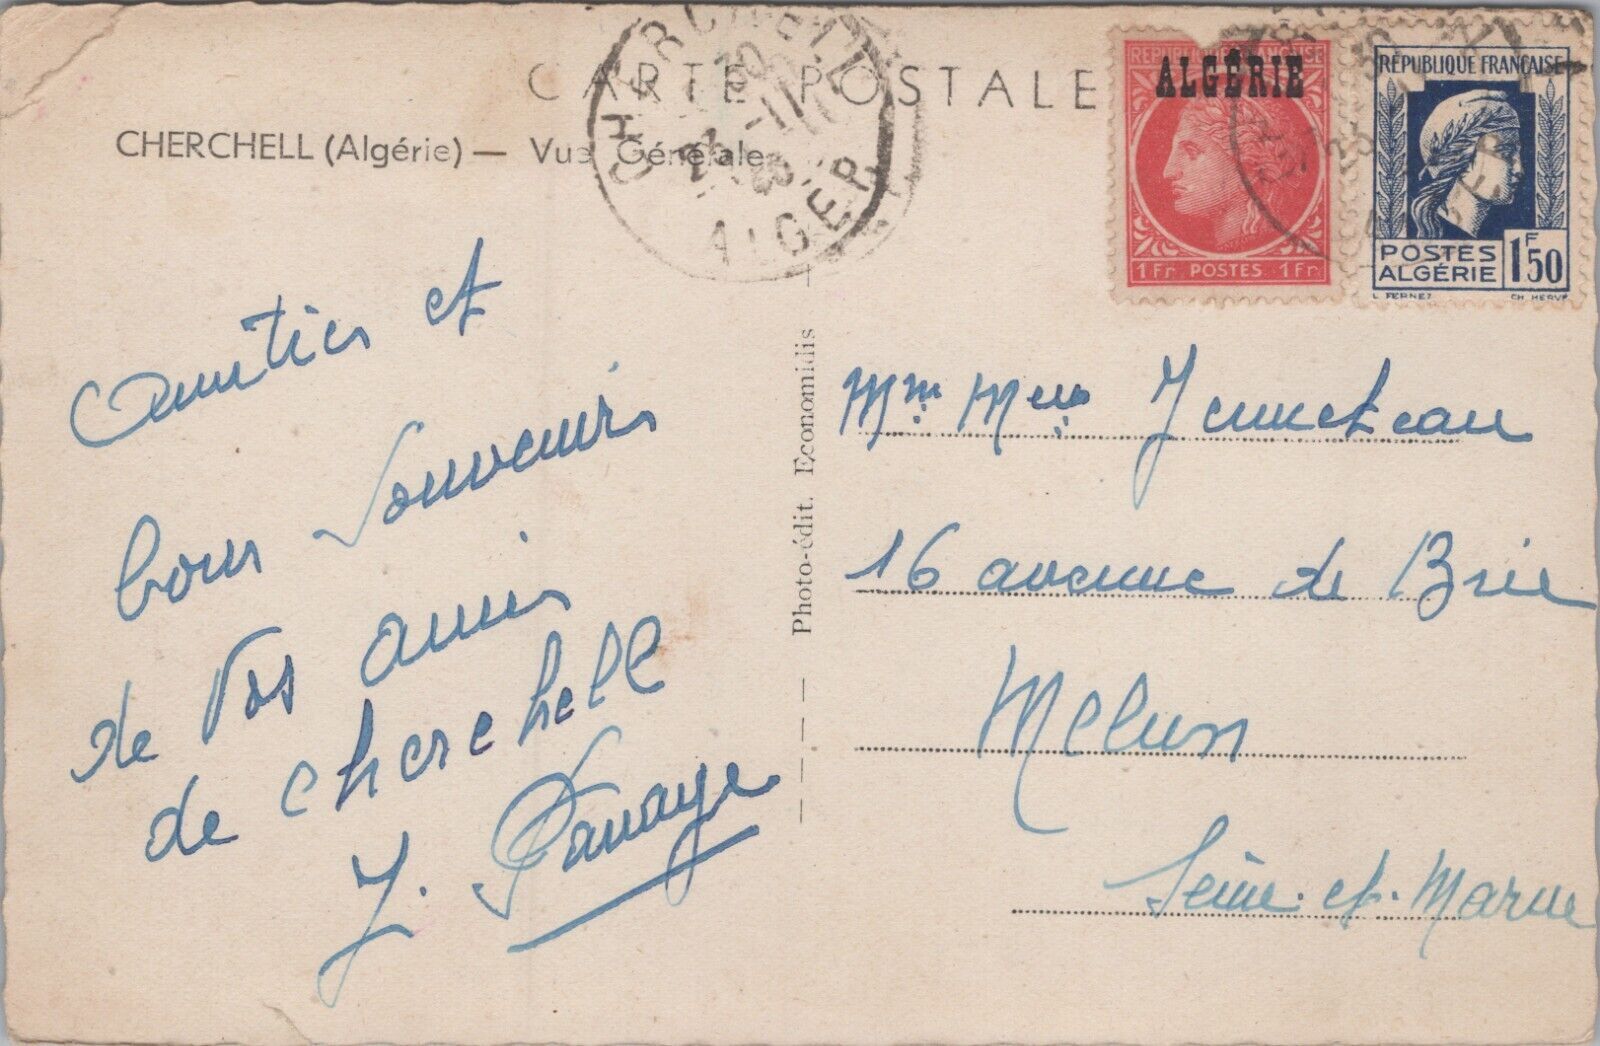 CARTE POSTALE
CHERCHELL (Algérie) — Vue Générale
CHERCHELL
ALGER
RÉPUBLIQUE FRANÇAISE
ALGÉRIE
1 Fr POSTES 1 Fr
RÉPUBLIQUE FRANÇAISE
POSTES
ALGÉRIE 1F50
L. FERNEZ CH. HERVÉ
amitiés et
bons souvenirs
de vos amis
de cherchell
J.
Photo-édit. Economidis
Mme
16 avenue de Brie
Melun
Seine-et-Marne